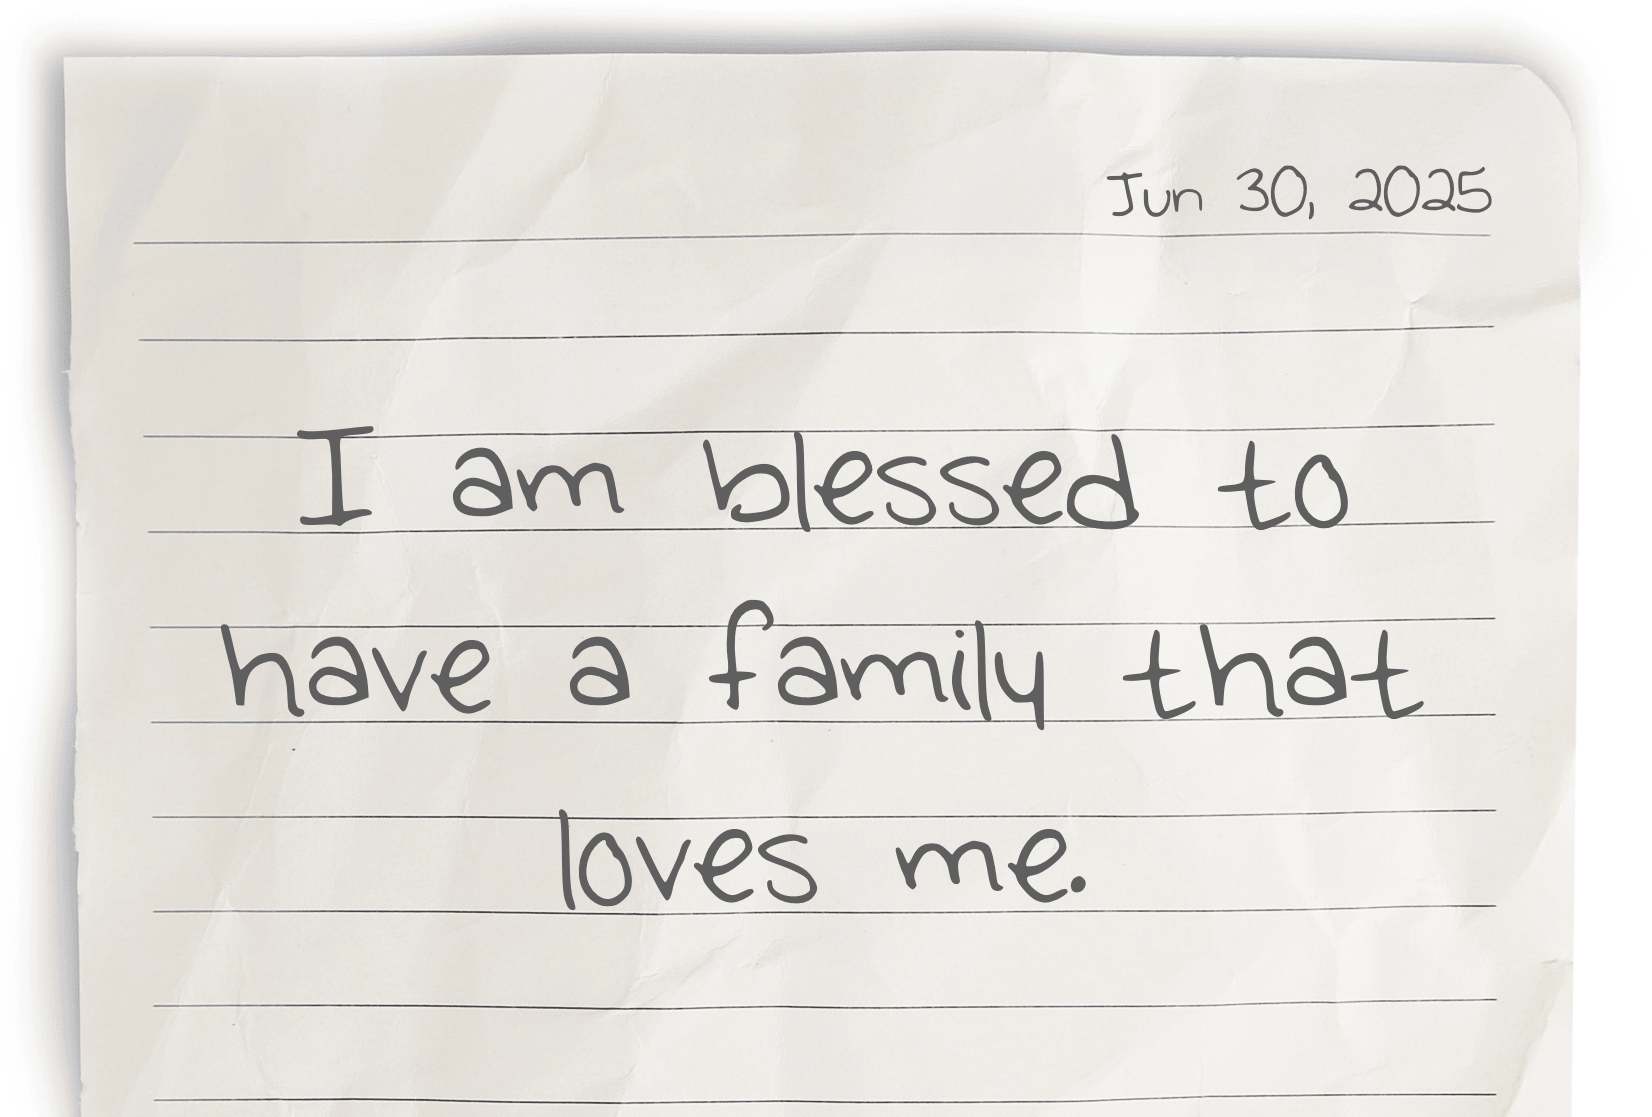 Jun 30, 2025
I am blessed to
have a family that
loves me.